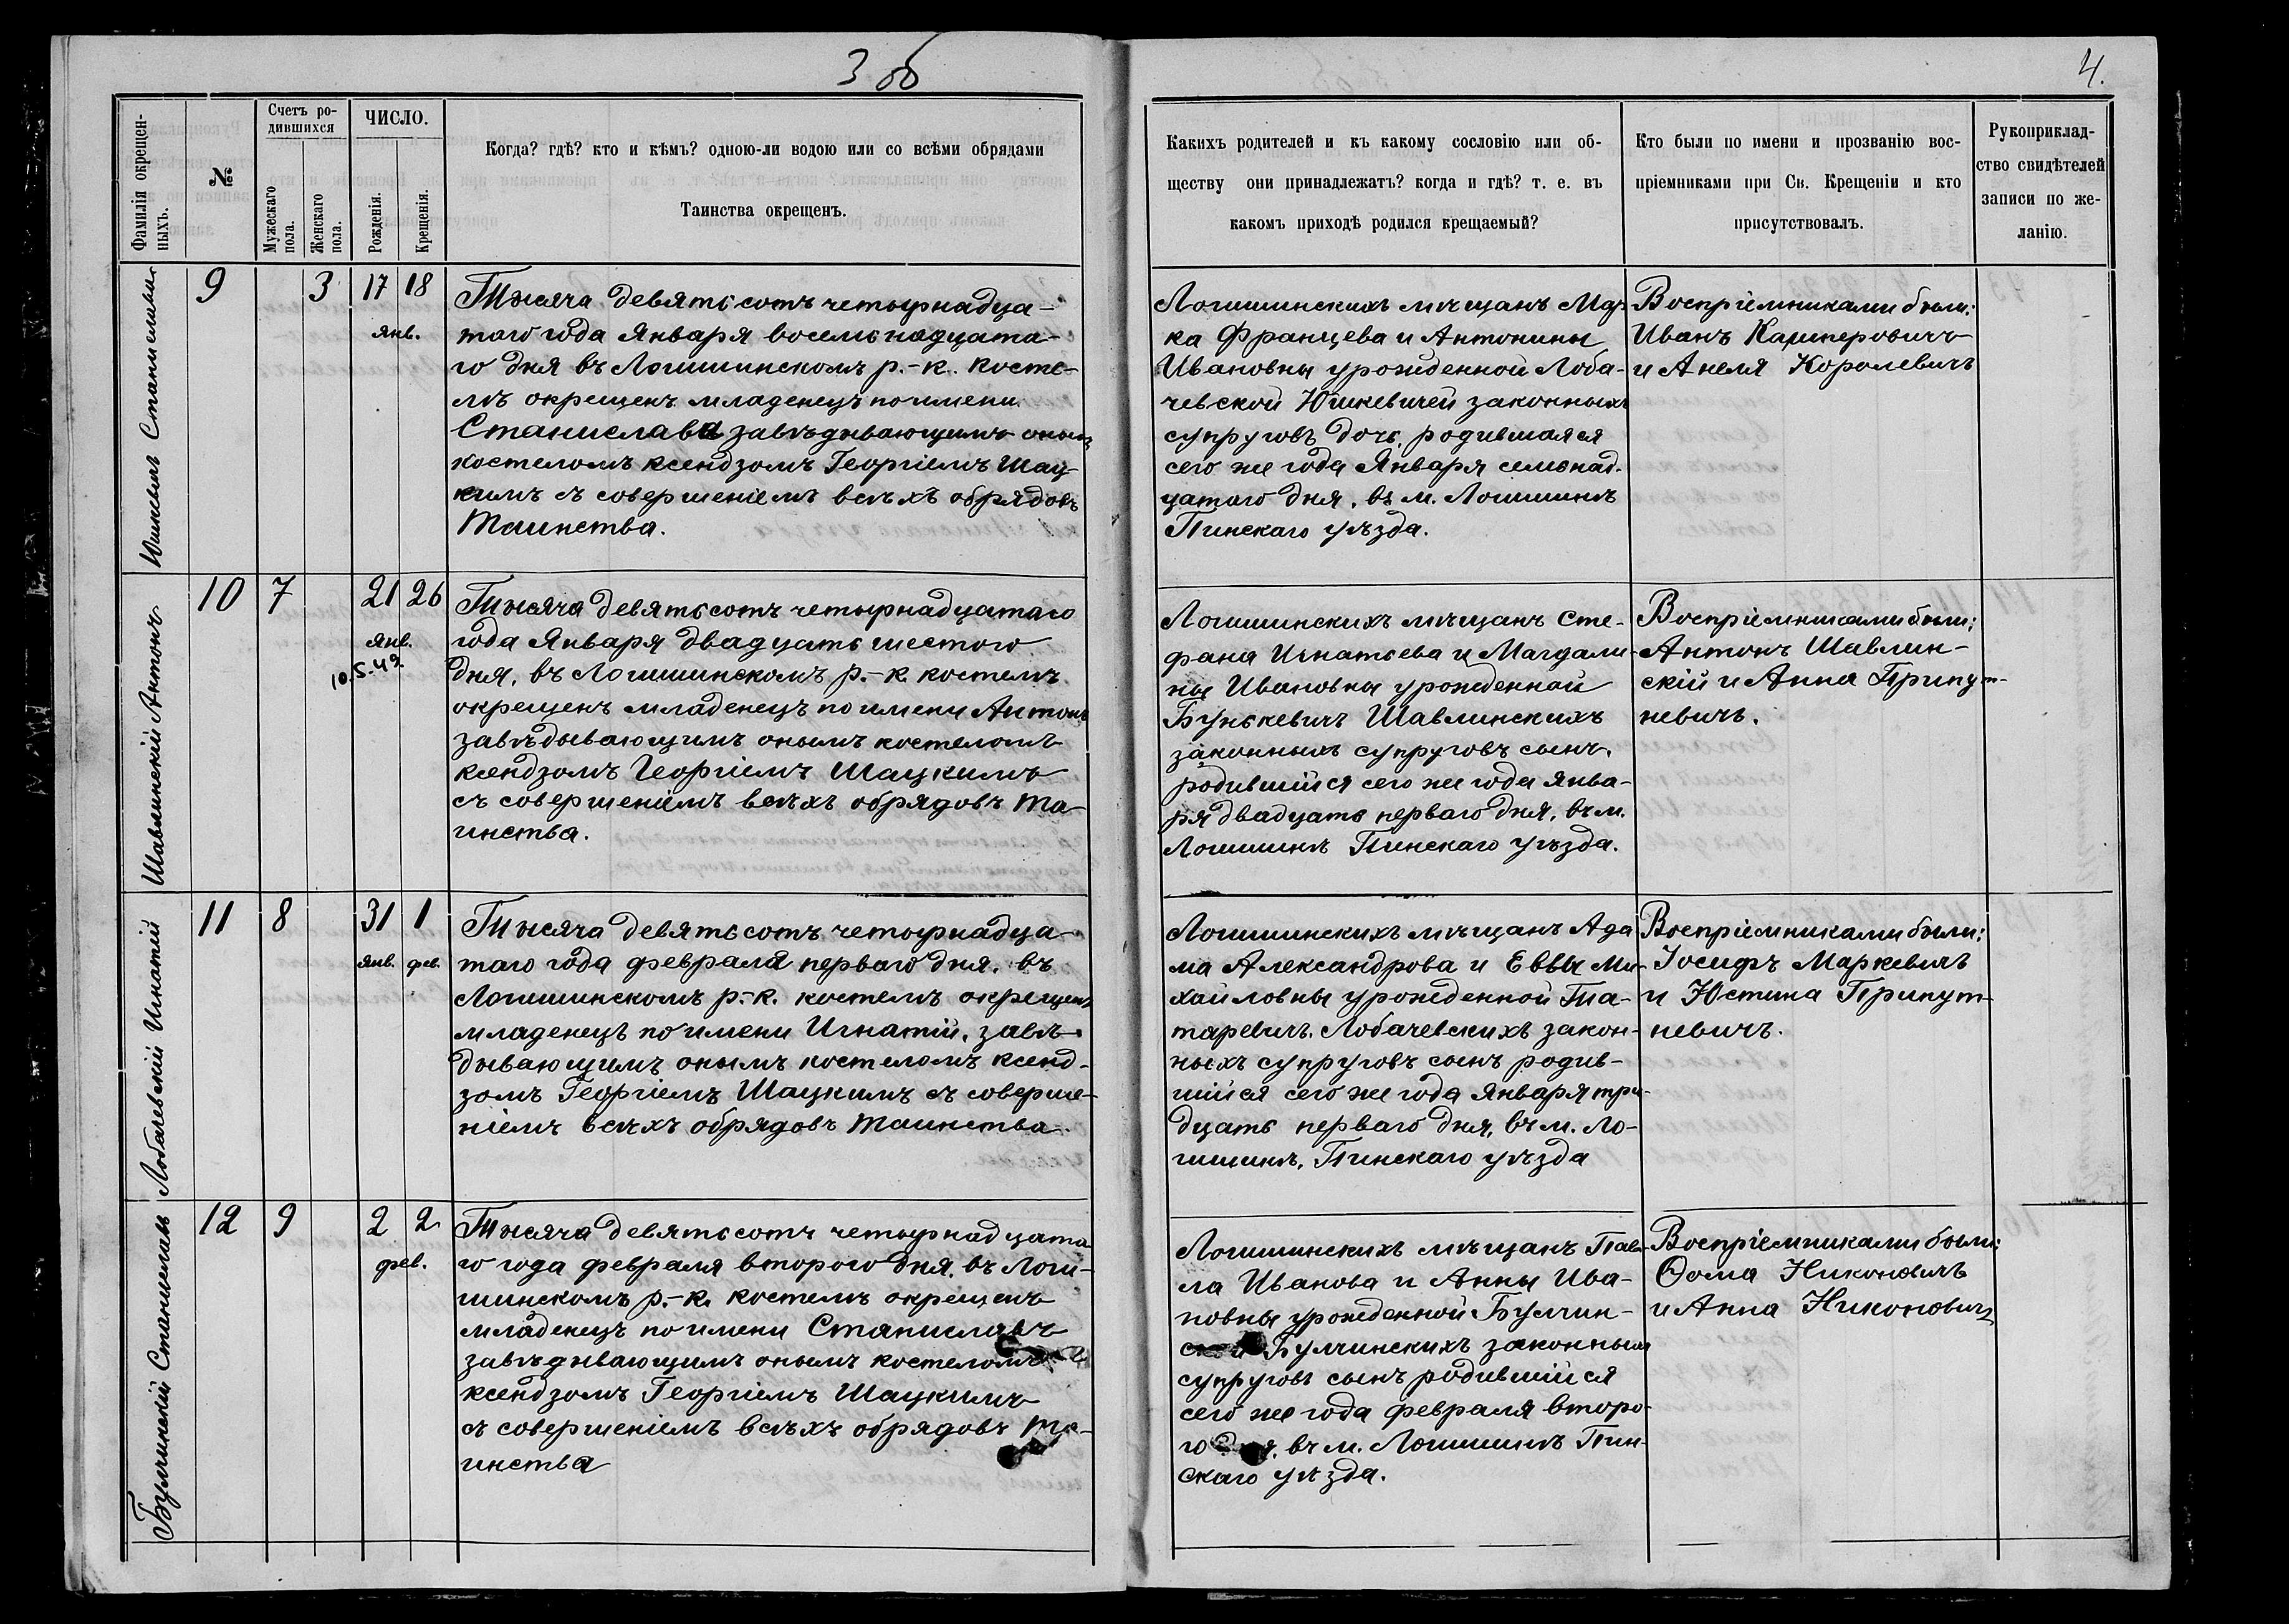 3 об
4.
Фамилія окрещен-
ныхъ.
№
Счетъ ро-
дившихся
Мужескаго
пола.
Женскаго
пола.
ЧИСЛО.
Рожденія.
Крещенія.
Когда? гдѣ? кто и кѣмъ? одною-ли водою или со всѣми обрядами
Таинства окрещенъ.
Какихъ родителей и къ какому сословію или об-
ществу они принадлежатъ? когда и гдѣ? т. е. въ
какомъ приходѣ родился крещаемый?
Кто были по имени и прозванію вос-
пріемниками при Св. Крещеніи и кто
присутствовалъ.
Рукоприклад-
ство свидѣтелей
записи по же-
ланію.
Юшкевичъ Станислава
9
3
17 18
янв.
Тысяча девятьсотъ четырнадца-
таго года Января восемьнадцата-
го дня въ Логишинскомъ р.-к. косте-
лѣ окрещенъ младенецъ по имени
Станислава завѣдывающимъ онымъ
костеломъ ксендзомъ Георгіемъ Шац-
кимъ съ совершеніемъ всѣхъ обрядовъ
Таинства.
Логишинскихъ мѣщанъ Мар-
ка Францева и Антонины
Ивановны урожденной Лоба-
чевской Юшкевичей законныхъ
супруговъ дочь, родившаяся
сего же года Января семьнад-
цатаго дня, въ м. Логишинѣ
Пинскаго уѣзда.
Воспріемниками были:
Иванъ Кашперовичъ
и Анеля Королевичъ
Шавлинскій Антонъ
10
7
21 26
янв.
10.5.49.
Тысяча девятьсотъ четырнадцатаго
года Января двадцать шестого
дня, въ Логишинскомъ р.-к. костелѣ
окрещенъ младенецъ по имени Антонъ
завѣдывающимъ онымъ костеломъ
ксендзомъ Георгіемъ Шацкимъ
съ совершеніемъ всѣхъ обрядовъ Та-
инства.
Логишинскихъ мѣщанъ Сте-
фана Игнатьева и Магдали-
ны Ивановны урожденной
Бунькевичъ Шавлинскихъ
законныхъ супруговъ сынъ,
родившійся сего же года Янва-
ря двадцать перваго дня, въ м.
Логишинѣ Пинскаго уѣзда.
Воспріемниками были:
Антонъ Шавлин-
скій и Анна Припут-
невичъ.
Лобачевскій Игнатій
11
8
31 1
янв. фев.
Тысяча девятьсотъ четырнадца-
таго года февраля перваго дня, въ
Логишинскомъ р.-к. костелѣ окрещенъ
младенецъ по имени Игнатій, завѣ-
дывающимъ онымъ костеломъ ксенд-
зомъ Георгіемъ Шацкимъ съ соверше-
ніемъ всѣхъ обрядовъ Таинства.
Логишинскихъ мѣщанъ Ада
ма Александрова и Еввы Ми-
хайловны урожденной Та-
таревичъ Лобачевскихъ закон-
ныхъ супруговъ сынъ родив-
шійся сего же года Января три-
дцать перваго дня, въ м. Ло-
гишинѣ, Пинскаго уѣзда
Воспріемниками были:
Іосифъ Маркевичъ
и Юстина Припут-
невичъ.
Булчинскій Станиславъ
12
9
2 2
фев.
Тысяча девятьсотъ четырнадцата
го года февраля второго дня, въ Логи-
шинскомъ р.-к. костелѣ окрещенъ
младенецъ по имени Станиславъ
завѣдывающимъ онымъ костеломъ
ксендзомъ Георгіемъ Шацкимъ
съ совершеніемъ всѣхъ обрядовъ Та-
инства
Логишинскихъ мѣщанъ Пав-
ла Иванова и Анны Ива-
новны урожденной Булчин-
ской Булчинскихъ законныхъ
супруговъ сынъ родившійся
сего же года февраля второ-
го дня, въ м. Логишинѣ Пин-
скаго уѣзда.
Воспріемниками были:
Ѳома Никоновичъ
и Анна Никоновичъ